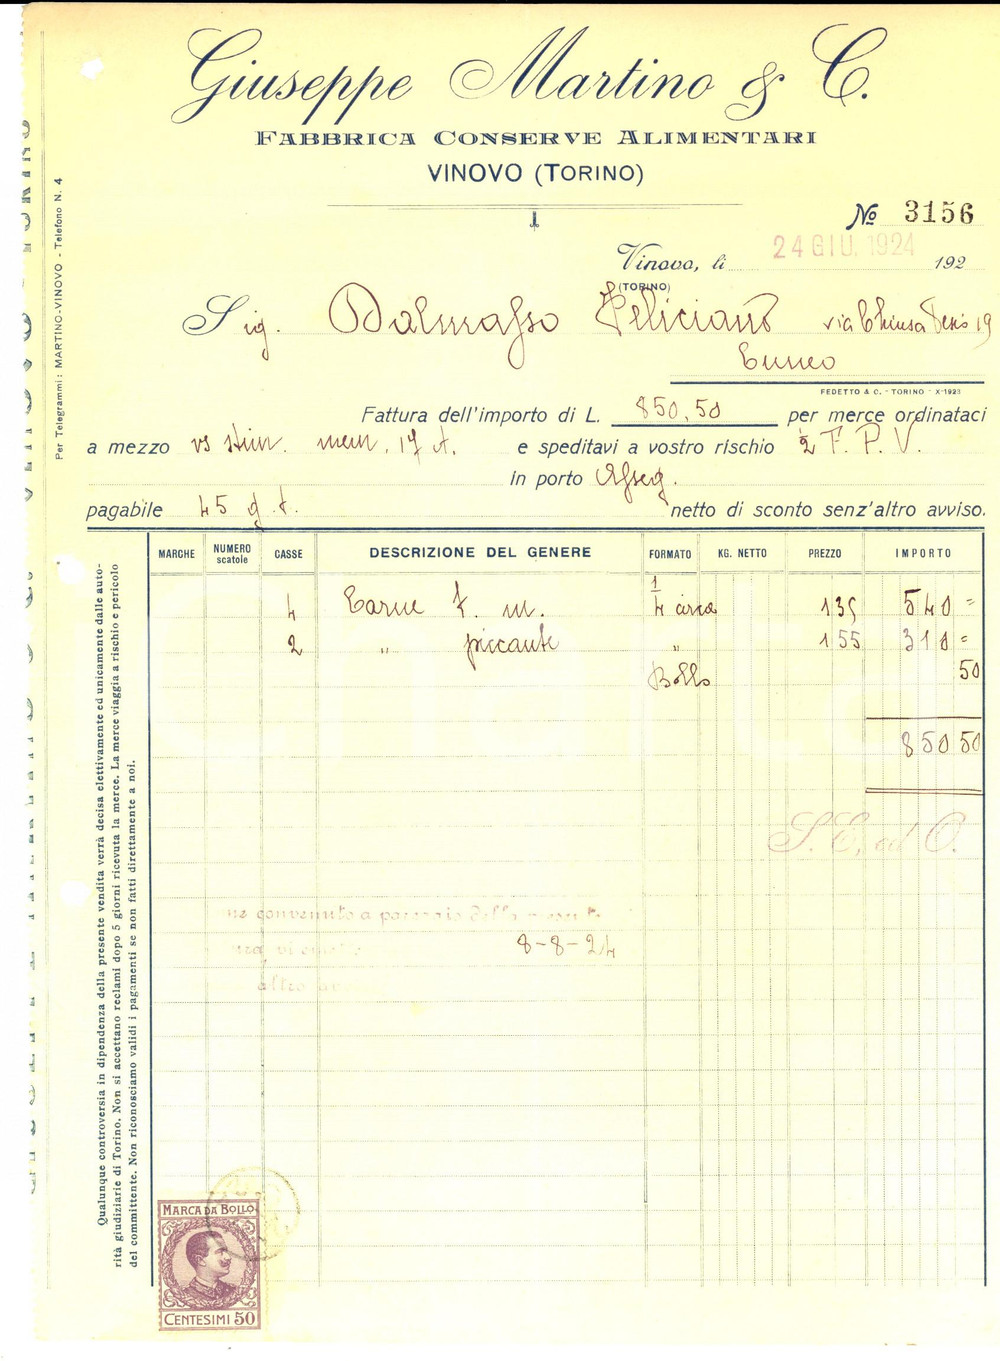 Giuseppe Martino & C.
FABBRICA CONSERVE ALIMENTARI
VINOVO (TORINO)
No 3156
Vinovo, li 24 GIU. 1924 192
(TORINO)
Sig. Dalmasso Feliciano via Chiusa Pesio 19
Cuneo
FEDETTO & C. - TORINO - X-1923
Fattura dell'importo di L. 850,50 per merce ordinataci
a mezzo vs mem. 17 e speditavi a vostro rischio F. P. V.
in porto Asseg.
pagabile 45 g. netto di sconto senz'altro avviso.
MARCHE NUMERO scatole CASSE DESCRIZIONE DEL GENERE FORMATO KG. NETTO PREZZO IMPORTO
4 Carne f. m. 1/4 circa 135 540 =
2 " piccante " 155 310 =
Bollo 50
850 50
S. E. ed O.
convenuto a
8-8-24
altro
Per Telegrammi: MARTINO-VINOVO - Telefono N. 4
Qualunque controversia in dipendenza della presente vendita verrà decisa elettivamente ed unicamente dalle auto-
rità giudiziarie di Torino. Non si accettano reclami dopo 5 giorni ricevuta la merce. La merce viaggia a rischio e pericolo
del committente. Non riconosciamo validi i pagamenti se non fatti direttamente a noi.
MARCA DA BOLLO
CENTESIMI 50